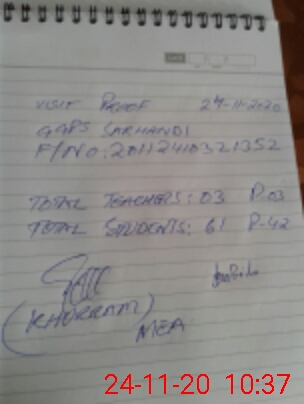 DATE
VISIT PROOF 24-11-2020
GGPS SARHANDI
F/NO: 20112410321352
TOTAL TEACHERS: 03 P-03
TOTAL STUDENTS: 61 P-42
(KHURRAM)
MEA
24-11-20 10:37